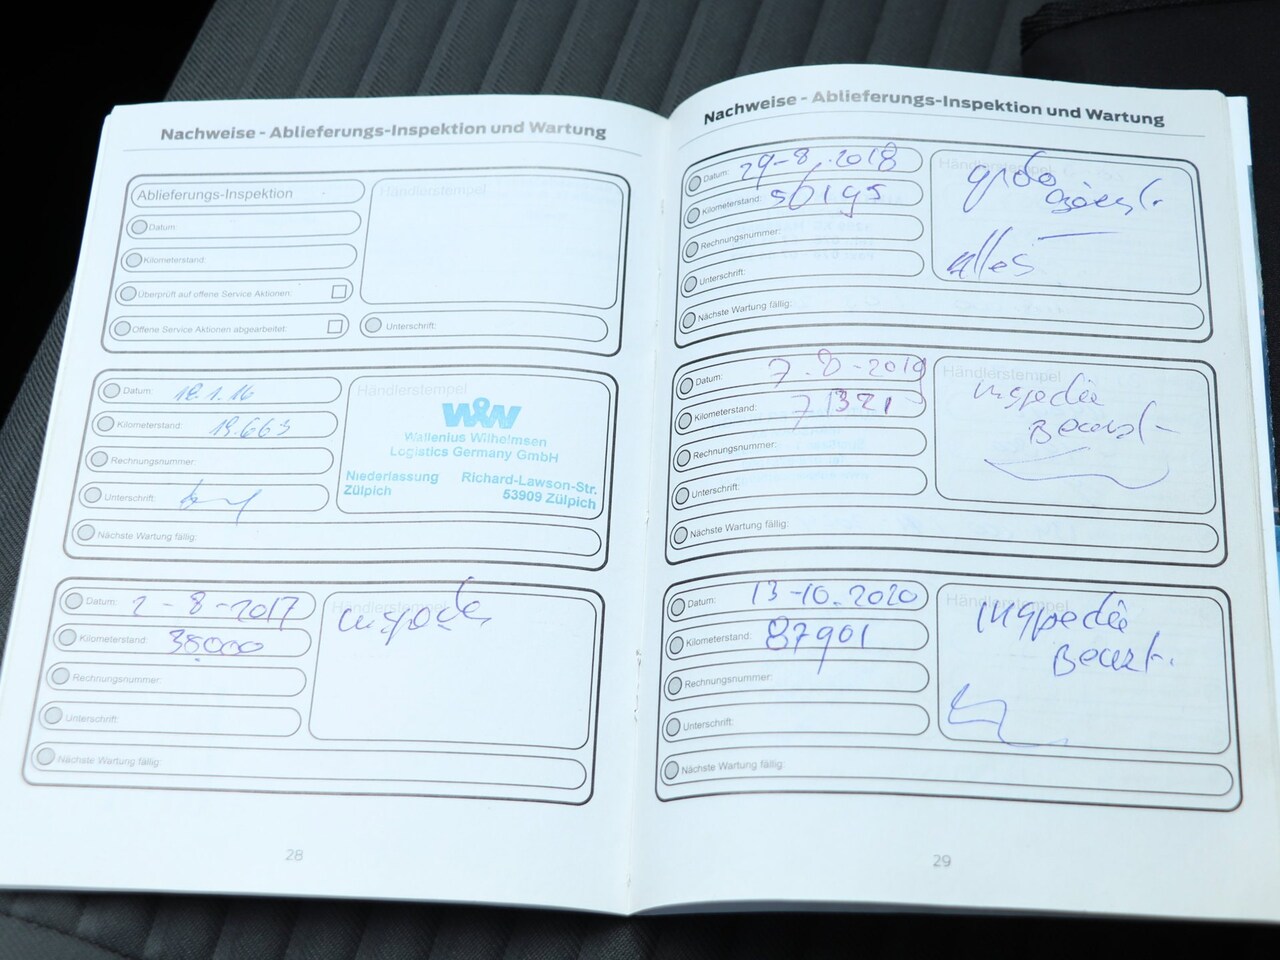 Nachweise - Ablieferungs-Inspektion und Wartung
Ablieferungs-Inspektion
Händlerstempel
Datum:
Kilometerstand:
Überprüft auf offene Service Aktionen:
Offene Service Aktionen abgearbeitet:
Unterschrift:
Datum: 18.1.16
Kilometerstand: 19.663
Rechnungsnummer:
Unterschrift:
Nächste Wartung fällig:
Händlerstempel
W&W
Wallenius Wilhelmsen
Logistics Germany GmbH
Niederlassung Richard-Lawson-Str.
Zülpich 53909 Zülpich
Datum: 2-8-2017
Kilometerstand: 38000
Rechnungsnummer:
Unterschrift:
Nächste Wartung fällig:
Händlerstempel
inspectie
28
Nachweise - Ablieferungs-Inspektion und Wartung
Datum: 29-8-2018
Kilometerstand: 56195
Rechnungsnummer:
Unterschrift:
Nächste Wartung fällig:
Händlerstempel
grote
alles
Datum: 7-8-2019
Kilometerstand: 71321
Rechnungsnummer:
Unterschrift:
Nächste Wartung fällig:
Händlerstempel
inspectie
Beurt
Datum: 13-10-2020
Kilometerstand: 87901
Rechnungsnummer:
Unterschrift:
Nächste Wartung fällig:
Händlerstempel
inspectie
Beurt.
29